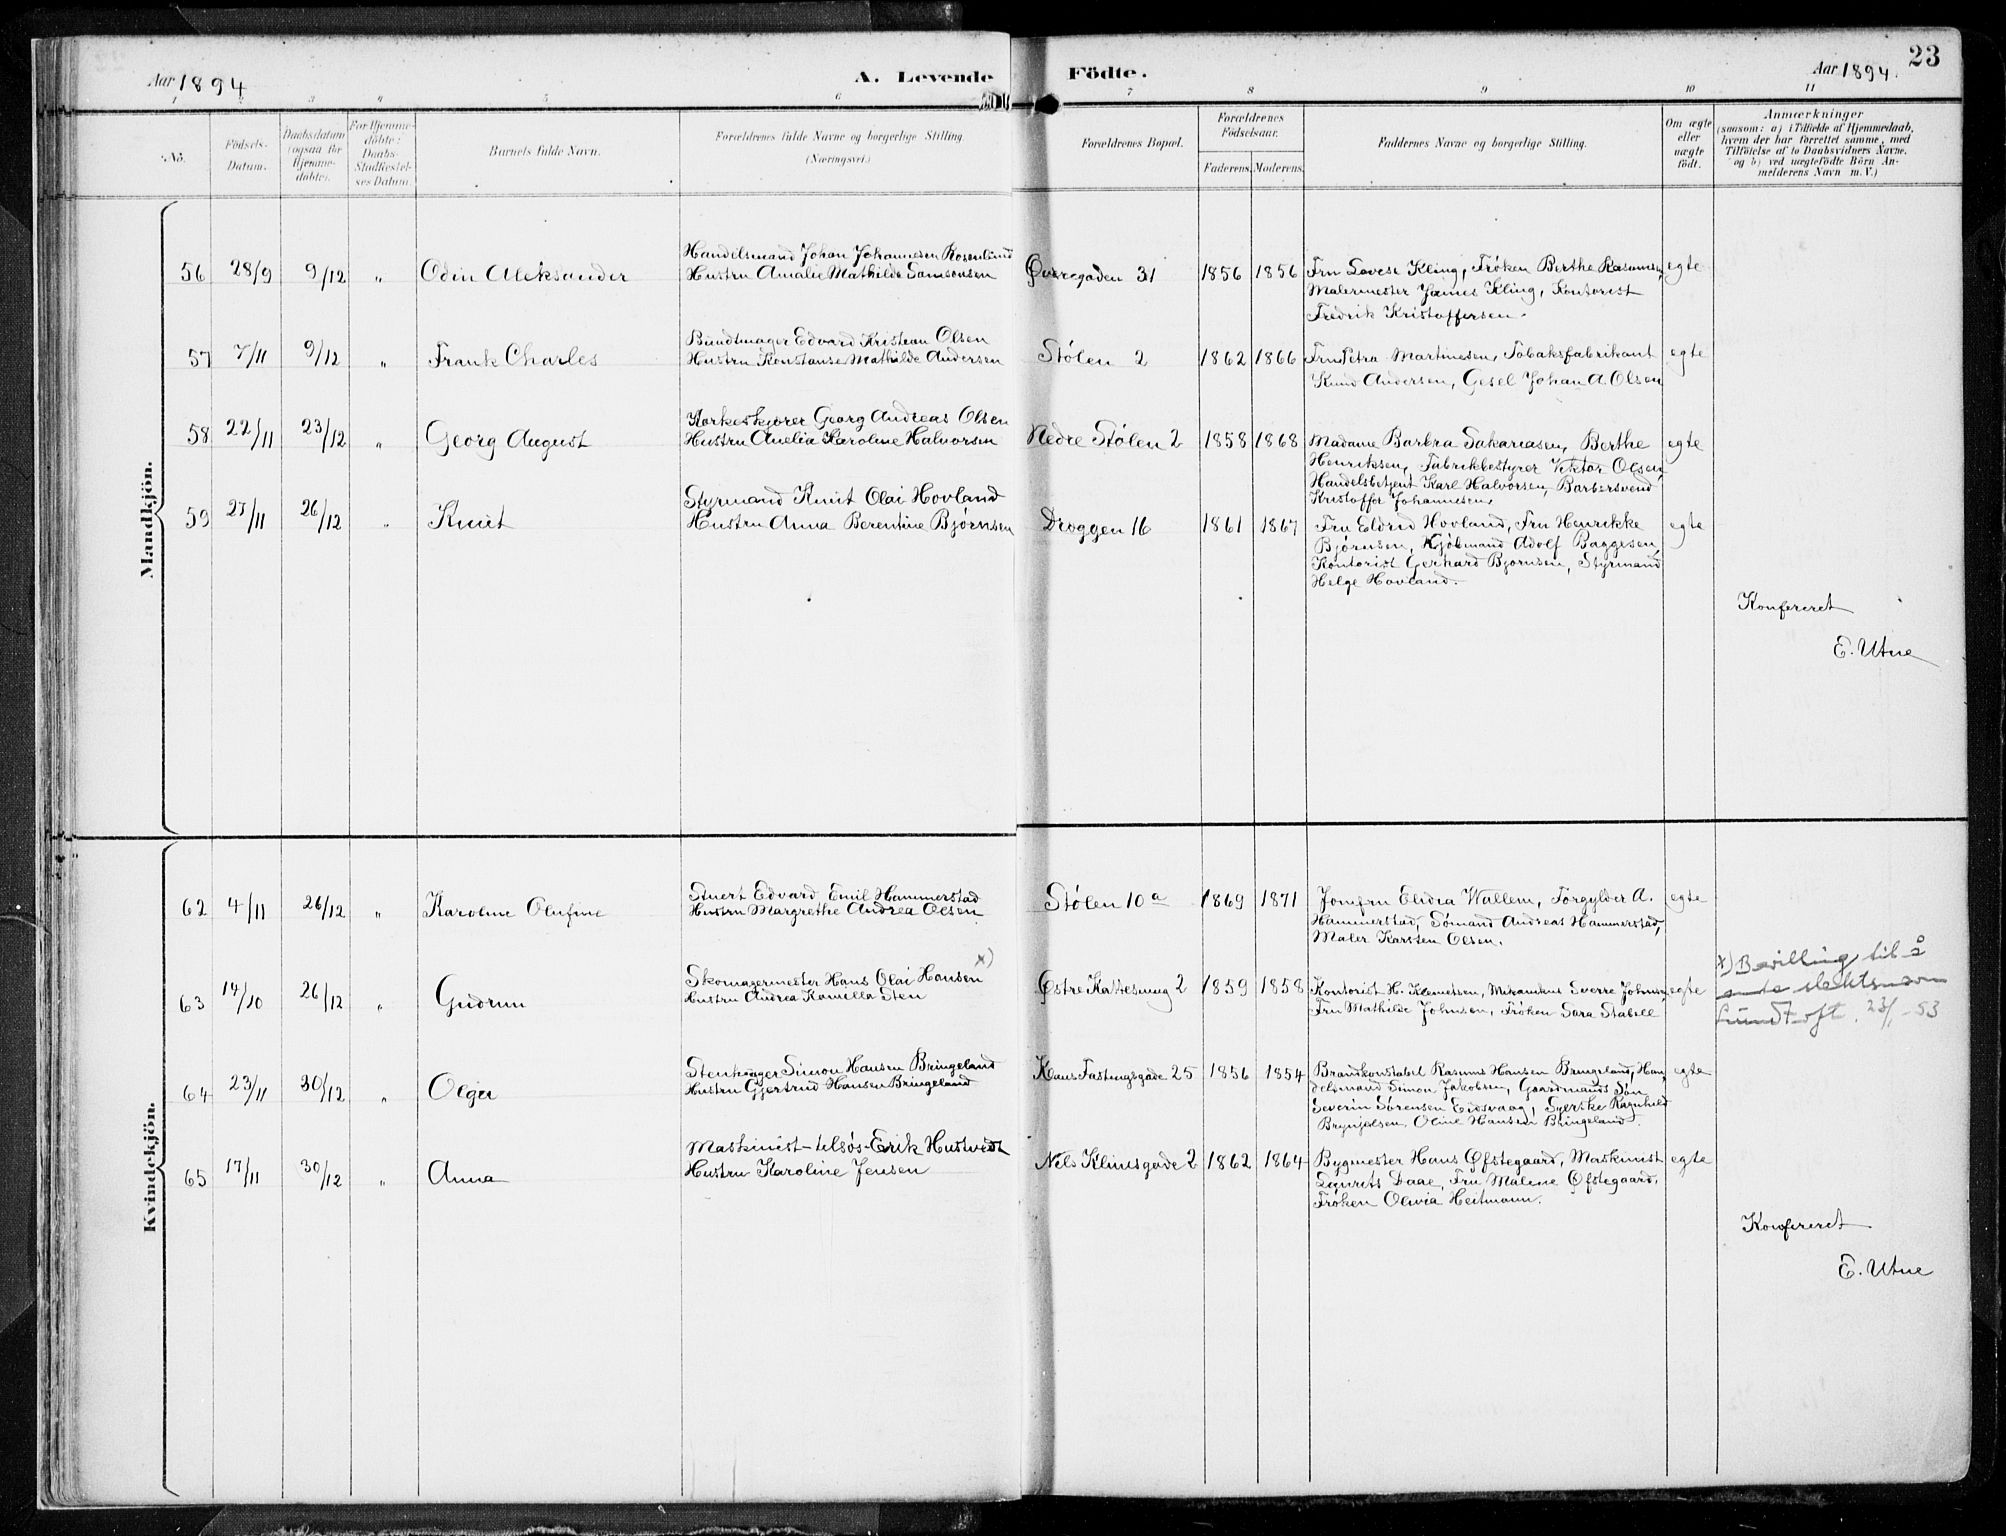 Aar 1894
A. Levende Födte.
Aar 1894. 23
1 2 3 4 5 6 7 8 9 10 11
No.
Fødsels-Datum.
Daabsdatum (ogsaa for Hjemmedøbte).
For Hjemmedøbte: Daabs-Stadfæstelses Datum.
Barnets fulde Navn.
Forældrenes fulde Navne og borgerlige Stilling.
(Næringsvei.)
Forældrenes Bopæl.
Forældrenes Fødselsaar.
Faderens. Moderens.
Faddernes Navne og borgerlige Stilling.
Om ægte eller uægte født.
Anmærkninger
(saasom: a) i Tilfælde af Hjemmedaab,
hvem der har forrettet samme, med
Tilføielse af to Daabsvidners Navne.
og b) ved uægtefødte Börn An-
melderens Navn m. V.)
Mandkjön.
56 28/9 9/12 „ Odin Aleksander
Handelsmand Johan Johannesen Rosenlund
Hustru Amalie Mathilde Samsonsen
Øvregaden 31 1856 1856
Fru Lovese Kling, Frøken Berthe Rasmusen,
Malermester James Kling, Kontorist
Fredrik Kristoffersen.
egte
57 7/11 9/12 „ Frank Charles
Bundtmager Edvard Kristian Olsen
Hustru Konstanse Mathilde Andersen
Stølen 2 1862 1866
Fru Petra Martinesen, Tobaksfabrikant
Knud Andersen, Gesel Johan A. Olsen
egte
58 22/11 23/12 „ Georg August
Korkeskjærer Georg Andreas Olsen
Hustru Amelia Karoline Halvorsen
Nedre Stølen 2 1858 1868
Madame Barbra Sakariasen, Berthe
Henriksen, Fabrikbestyrer Viktor Olsen
Handelsbetjent Karl Halvorsen, Barbersvend
Kristoffer Johannesen.
egte
59 27/11 26/12 „ Knut
Styrmand Knut Olai Hovland
Hustru Anna Berentine Bjørnsen
Dreggen 16 1861 1867
Fru Eldrid Hovland, Fru Henrikke
Bjørnsen, Kjøbmand Adolf Baggesen,
Kontorist Gerhard Bjørnsen, Styrmand
Helge Hovland.
egte
Konfereret
E. Utne
Kvindekjön.
62 4/11 26/12 „ Karoline Olufine
Stuert Edvard Emil Hammerstad
Hustru Margrethe Andrea Olsen
Stølen 10a 1869 1871
Jomfru Elidia Wallem, Forgylder A.
Hammerstad, Sømand Andreas Hammerstad,
Maler Karsten Olsen.
egte
63 14/10 26/12 „ Gudrun
Skomagermester Hans Olai Hansen x)
Hustru Andrea Kamilla Sten
Østre Kattesmug 2 1859 1858
Kontorist H. Klemetsen, Mekanikus Sverre Johnsen,
Fru Mathilde Johnsen, Frøken Sara Stabell
egte
x) Bevilling til å
ende slektsnavn
Lundtoft. 23/1-53
64 23/11 30/12 „ Olga
Stenhugger Simon Hansen Bringeland
Hustru Gjertrud Hansen Bringeland
Klaus Fastingsgade 25 1856 1854
Brandkonstabel Rasmus Hansen Bringeland, Han-
delsmand Simon Jakobsen, Gaardmands Søn
Severin Sørensen Eidsvaag, Syerske Ragnhild
Brynjelsen, Oline Hansen Bringeland.
egte
65 17/11 30/12 „ Anna
Maskinist tilsøs Erik Hustvedt
Hustru Karoline Jensen
Nels Klimsgade 2 1862 1864
Bygmester Hans Øfstegaard, Maskinist
Daae, Fru Malene Øfstegaard,
Frøken Olivia Heitmann.
egte
Konfereret
E. Utne